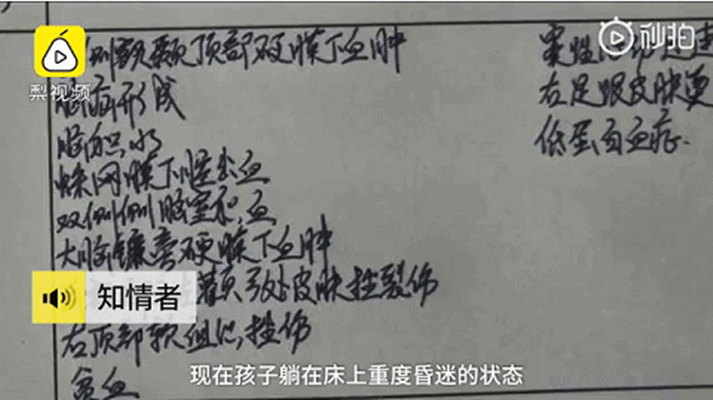 秒拍
梨视频
侧额颞顶部硬膜下血肿
脑疝形成
脑积水
蛛网膜下腔出血
双侧侧脑室积血
大脑镰旁硬膜下血肿
颞顶处皮肤挫裂伤
右顶部软组织挫伤
贫血
右足跟皮肤
低蛋白血症.
知情者
现在孩子躺在床上重度昏迷的状态